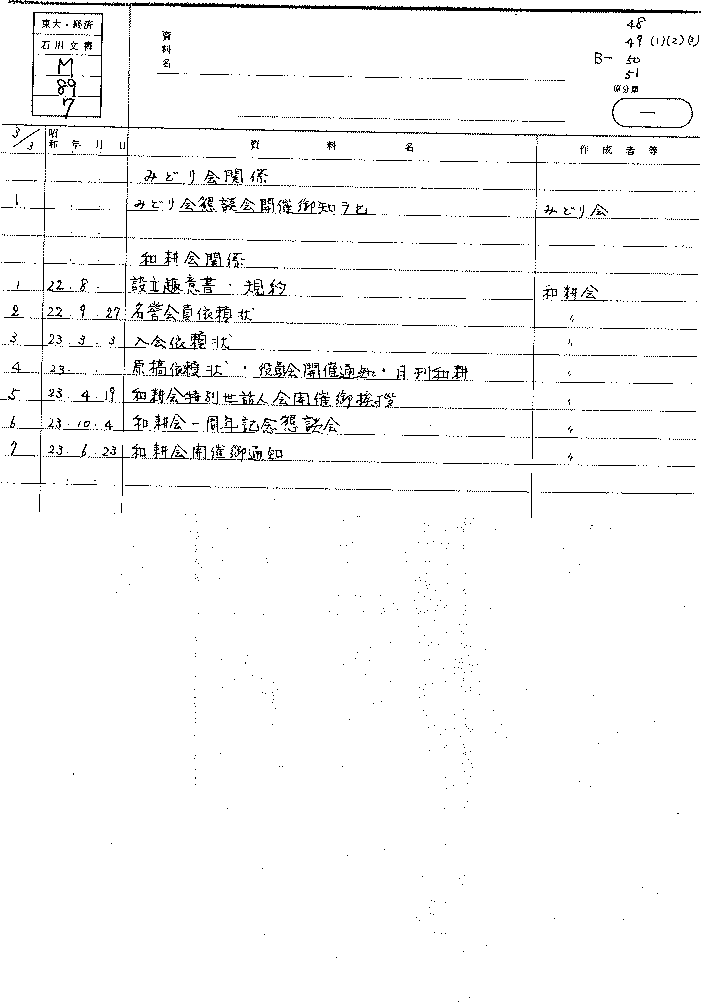 東大・経済
石川文書
M
89
7
資料名
48
49 (1)(2)(3)
B- 50
51
原分類
一
3/3 昭和 年 月 日 資料名 作成者等
みどり会関係
1 みどり会懇談会開催御知らせ みどり会
和耕会関係
1 22. 8. 設立趣意書・規約 和耕会
2 22. 9. 27 名誉会員依頼状 〃
3 23. 3. 3 入会依頼状 〃
4 23. 原稿依頼状・役員会開催通知・月刊和耕 〃
5 23. 4. 19 和耕会特別世話人会開催御挨拶 〃
6 23. 10. 4 和耕会一周年記念懇談会 〃
7 23. 6. 23 和耕会開催御通知 〃